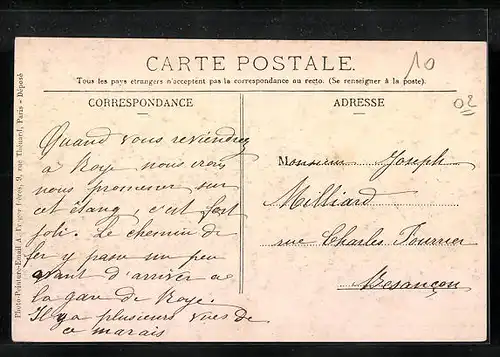 CARTE POSTALE.
Tous les pays étrangers n'acceptent pas la correspondance au recto. (Se renseigner à la poste).
CORRESPONDANCE
Quand vous reviendrez
à Roye nous irons
nous promener sur
cet étang c'est fort
joli. Le chemin de
fer y passe un peu
avant d'arriver à
la gare de Roye.
Il y a plusieurs vues de
ce marais
ADRESSE
Monsieur Joseph
Milliard
rue Charles Fourrier
Besançon
10
02
Photo-Peinture-Email A. Ferger frères, 9, rue Thénard, Paris - Déposé